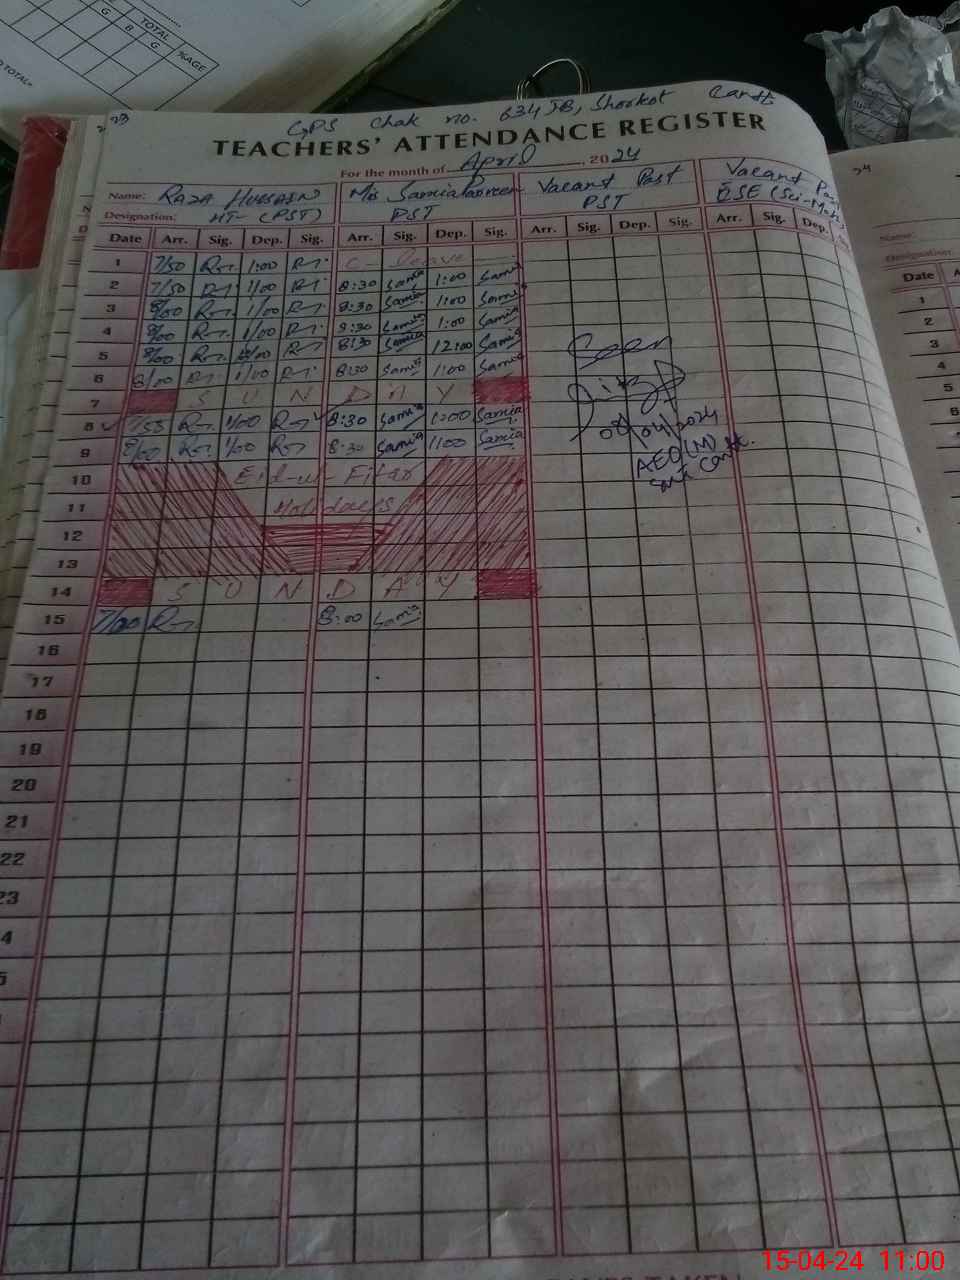 TOTAL
G B G %AGE
TOTAL=
GPS Chak no. 634 JB, Shorkot Cantt
TEACHERS' ATTENDANCE REGISTER
For the month of April, 2024
Name: RAZA HUSSAIN Mis Samia Parveen Vacant Post Vacant Pos
Designation: HT- (PST) PST PST ESE (Sci-Math
Date Arr. Sig. Dep. Sig. Arr. Sig. Dep. Sig. Arr. Sig. Dep. Sig. Arr. Sig. Dep.
1 7/50 1:00 C- Leave
2 7/50 1/00 8:30 Samia 1:00 Samia
3 8/00 1/00 8:30 Samia 1:00 Samia
4 8/00 1/00 8:30 Samia 1:00 Samia
5 8/00 8:30 Samia 12:00 Samia
6 8/00 1/00 8:30 Samia 1:00 Samia
7 S U N D A Y
8 7/55 1/00 8:30 Samia 1:00 Samia
9 8/00 1/00 8:30 Samia 1:00 Samia
10 Eid-ul-Fitar
11 Holidays
12
13
14 S U N D A Y
15 7/00 8:00 Samia
16
17
18
19
20
21
22
23
4
5
Seen
08/04/2024
AEO (M)
Cantt.
24
Name:
Designation:
Date A
1
2
3
4
5
6
7
8
9
10
11
12
13
14
15
16
15-04-24 11:00